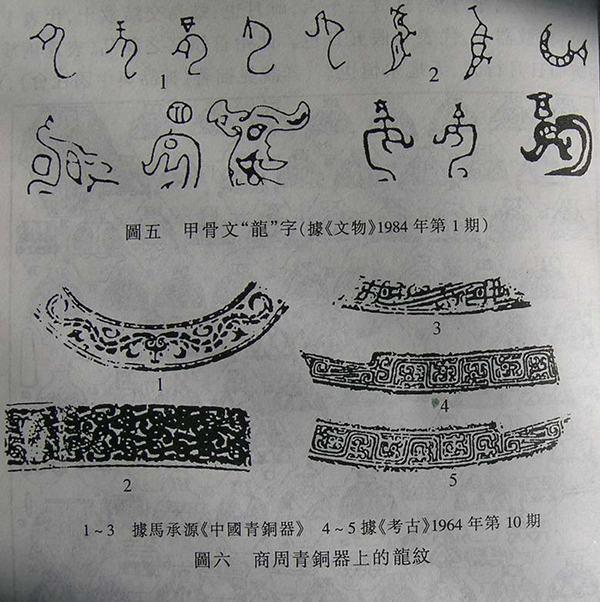 1
2
圖五 甲骨文“龍”字(據《文物》1984年第1期)
1
3
4
2
5
1~3 據馬承源《中國青銅器》 4~5據《考古》1964年第10期
圖六 商周青銅器上的龍紋